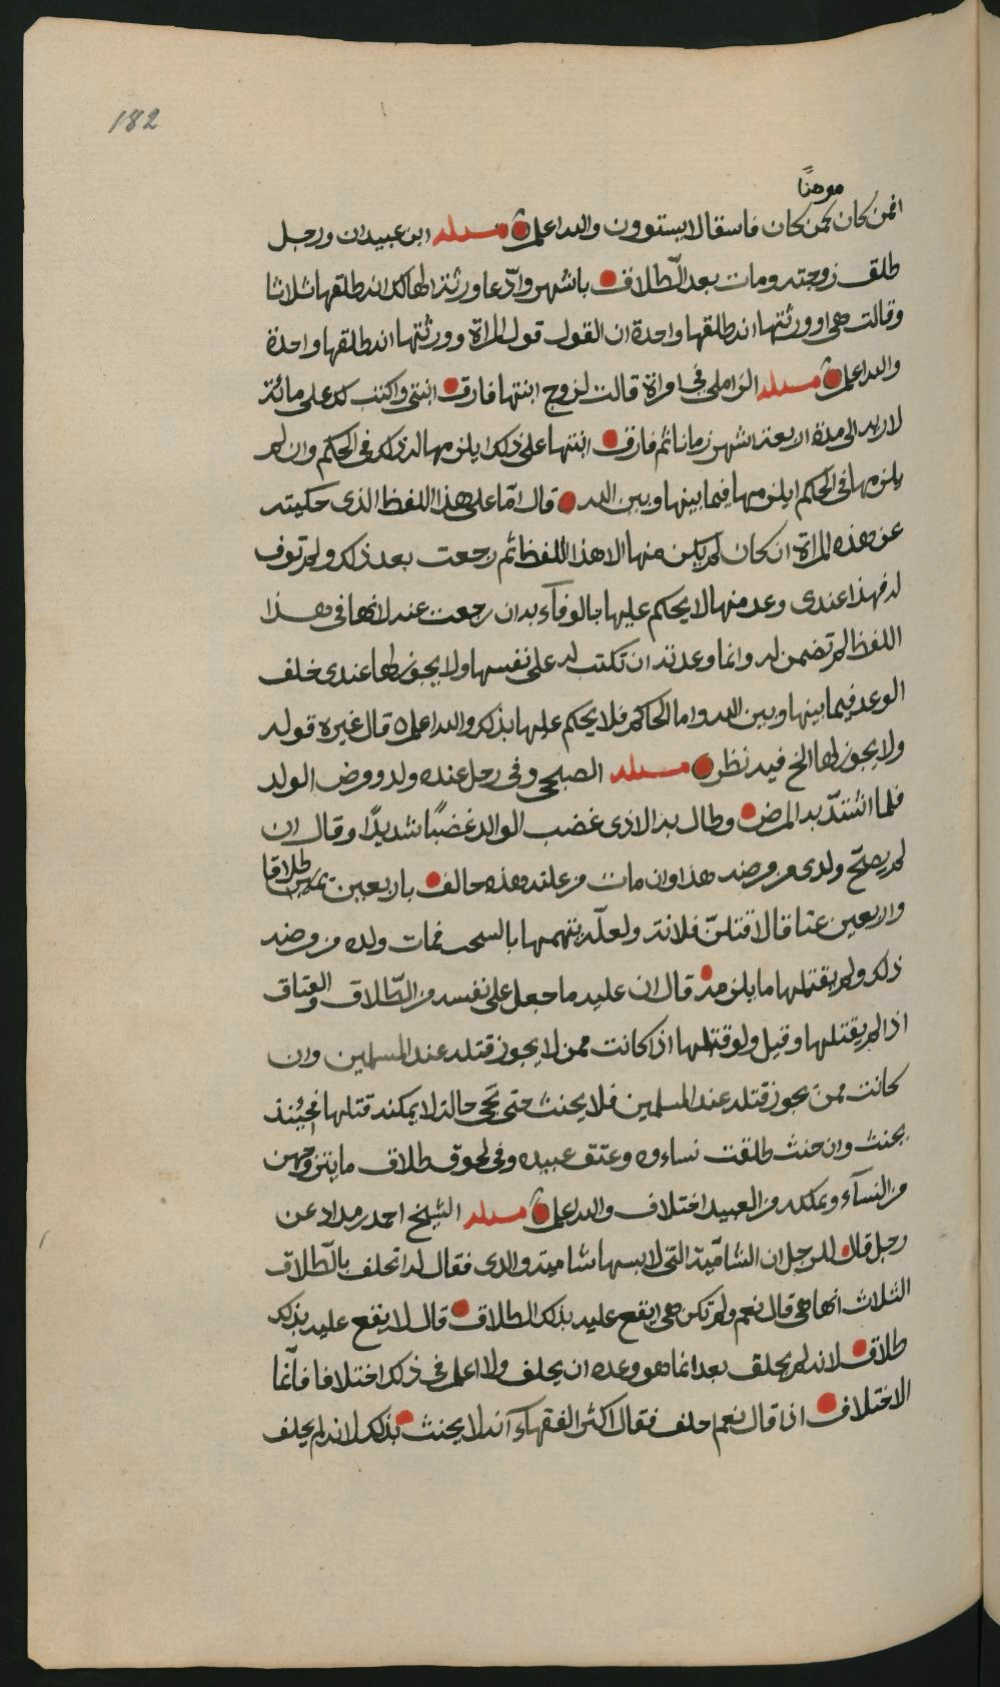 182
مومنًا
افمن كان كمن كان فاسقا لا يستوون والله اعلم مسئله ابن عبيدان ورجل
طلق زوجته ومات بعد الطلاق باشهر وادّعا ورثة الهالك انه طلقها ثلاثا
وقالت هى او ورثتها انه طلقها واحدة ان القول قول المراة وورثتها انه طلقها واحدة
والله اعلم مسئله الزاملى فى امراة قالت لزوج ابنتها فارق ابنتى واكتب لك على مائة
لارية الى مدة اربعة اشهر زمانا ثم فارق ابنتها على ذلك ايلزمها له ذلك فى الحكم وان لم
يلزمها فى الحكم ايلزمها فيما بينها وبين الله قال امّا على هذا اللفظ الذى حكيته
عن هذه المراة ان كان لم يكن منها الا هذا اللفظ ثم رجعت بعد ذلك ولم توف
له فهذا عندى وعد منها لا يحكم عليها بالوفآء به ان رجعت عنه لانها فى هذا
اللفظ لم تضمن له وانما وعدته ان تكتب له على نفسها ولا يجوز لها عندى خلف
الوعد فيما بينها وبين الله واما الحاكم فلا يحكم عليها بذلك والله اعلم ٥ قال غيره قوله
ولا يجوز لها الخ فيه نظر مسئله الصبحى وفى رجل عنده ولد ومرض الولد
فلما اشتدّ به المرض وطال به الاذى غضب الوالد غضبًا شديدًا وقال ان
لم يصحّ ولدى من مرضه هذا وان مات من علته هذه حالف باربعين طلاقا
واربعين عتاقا لاقتلنّ فلانة ولعلّه يتهمها بالسحر فمات ولده من مرضه
ذلك ولم يقتلها ما يلزمه قال ان عليه ما جعل على نفسه من الطّلاق والعتاق
اذا لم يقتلها وقيل ولو قتلها اذا كانت ممن لا يجوز قتله عند المسلمين وان
كانت ممن يجوز قتله عند المسلمين فلا يحنث حتى تجى حالة لا يمكنه قتلها فحينئذ
يحنث وان حنث طلقت نساءوه وعتق عبيده وفى لحوق طلاق ما يتزوجهن
من النسآء ويملكه من العبيد اختلاف والله اعلم مسئله الشيخ احمد بن مداد عن
رجل قال للرجل ان الشاميّة التى لابسها شامية والدى فقال له اتحلف بالطّلاق
الثلاث انها هى قال نعم ولم تكن هى ايقع عليه بذلك الطلاق قال لا يقع عليه بذلك
طلاق لانه لم يحلف بعد انما هو وعده ان يحلف ولا اعلم فى ذلك اختلافا فآنّما
الاختلاف اذا قال نعم احلف فقال اكثر الفقهآء انه لا يحنث بذلك لانه لم يحلف